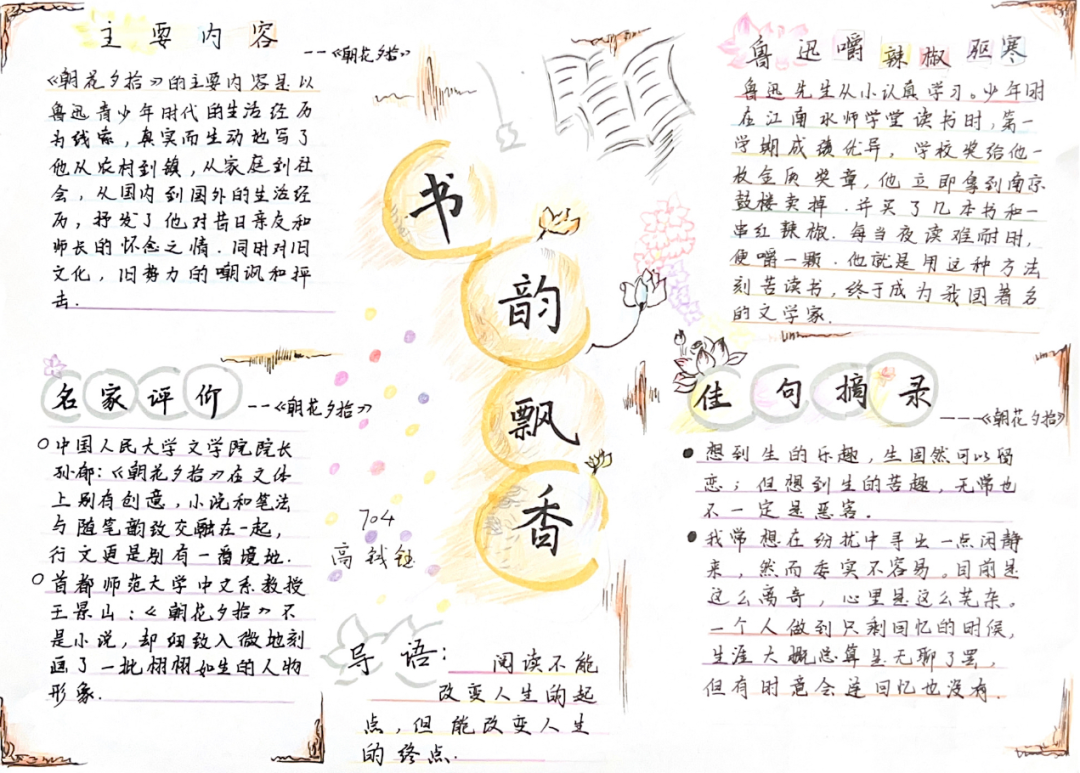 主要内容
--《朝花夕拾》
《朝花夕拾》的主要内容是以
鲁迅青少年时代的生活经历
为线索，真实而生动地写了
他从农村到镇，从家庭到社
会，从国内到国外的生活经
历，抒发了他对昔日亲友和
师长的怀念之情．同时对旧
文化，旧势力的嘲讽和抨
击．
鲁迅嚼辣椒驱寒
鲁迅先生从小认真学习。少年时
在江南水师学堂读书时，第一
学期成绩优异，学校奖给他一
枚金质奖章，他立即拿到南京
鼓楼卖掉．并买了几本书和一
串红辣椒．每当夜读难耐时，
便嚼一颗．他就是用这种方法
刻苦读书，终于成为我国著名
的文学家．
书
韵
飘
香
名家评价
--《朝花夕拾》
中国人民大学文学院院长
孙郁：《朝花夕拾》在文体
上别有创意，小说和笔法
与随笔韵致交融在一起，
行文更是别有一番境地．
首都师范大学中文系教授
王景山：《朝花夕拾》不
是小说，却细致入微地刻
画了一批栩栩如生的人物
形象．
704
高钱钰
导语：
阅读不能
改变人生的起
点，但能改变人生
的终点．
佳句摘录
---《朝花夕拾》
想到生的乐趣，生固然可以留
恋；但想到生的苦趣，无常也
不一定是恶客．
我常想在纷扰中寻出一点闲静
来，然而委实不容易。目前是
这么离奇，心里是这么芜杂。
一个人做到只剩回忆的时候，
生涯大概总算是无聊了罢，
但有时竟会连回忆也没有．